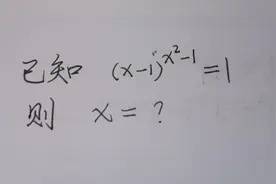 已知 (x-1)^{x^2-1}=1
则 x=?